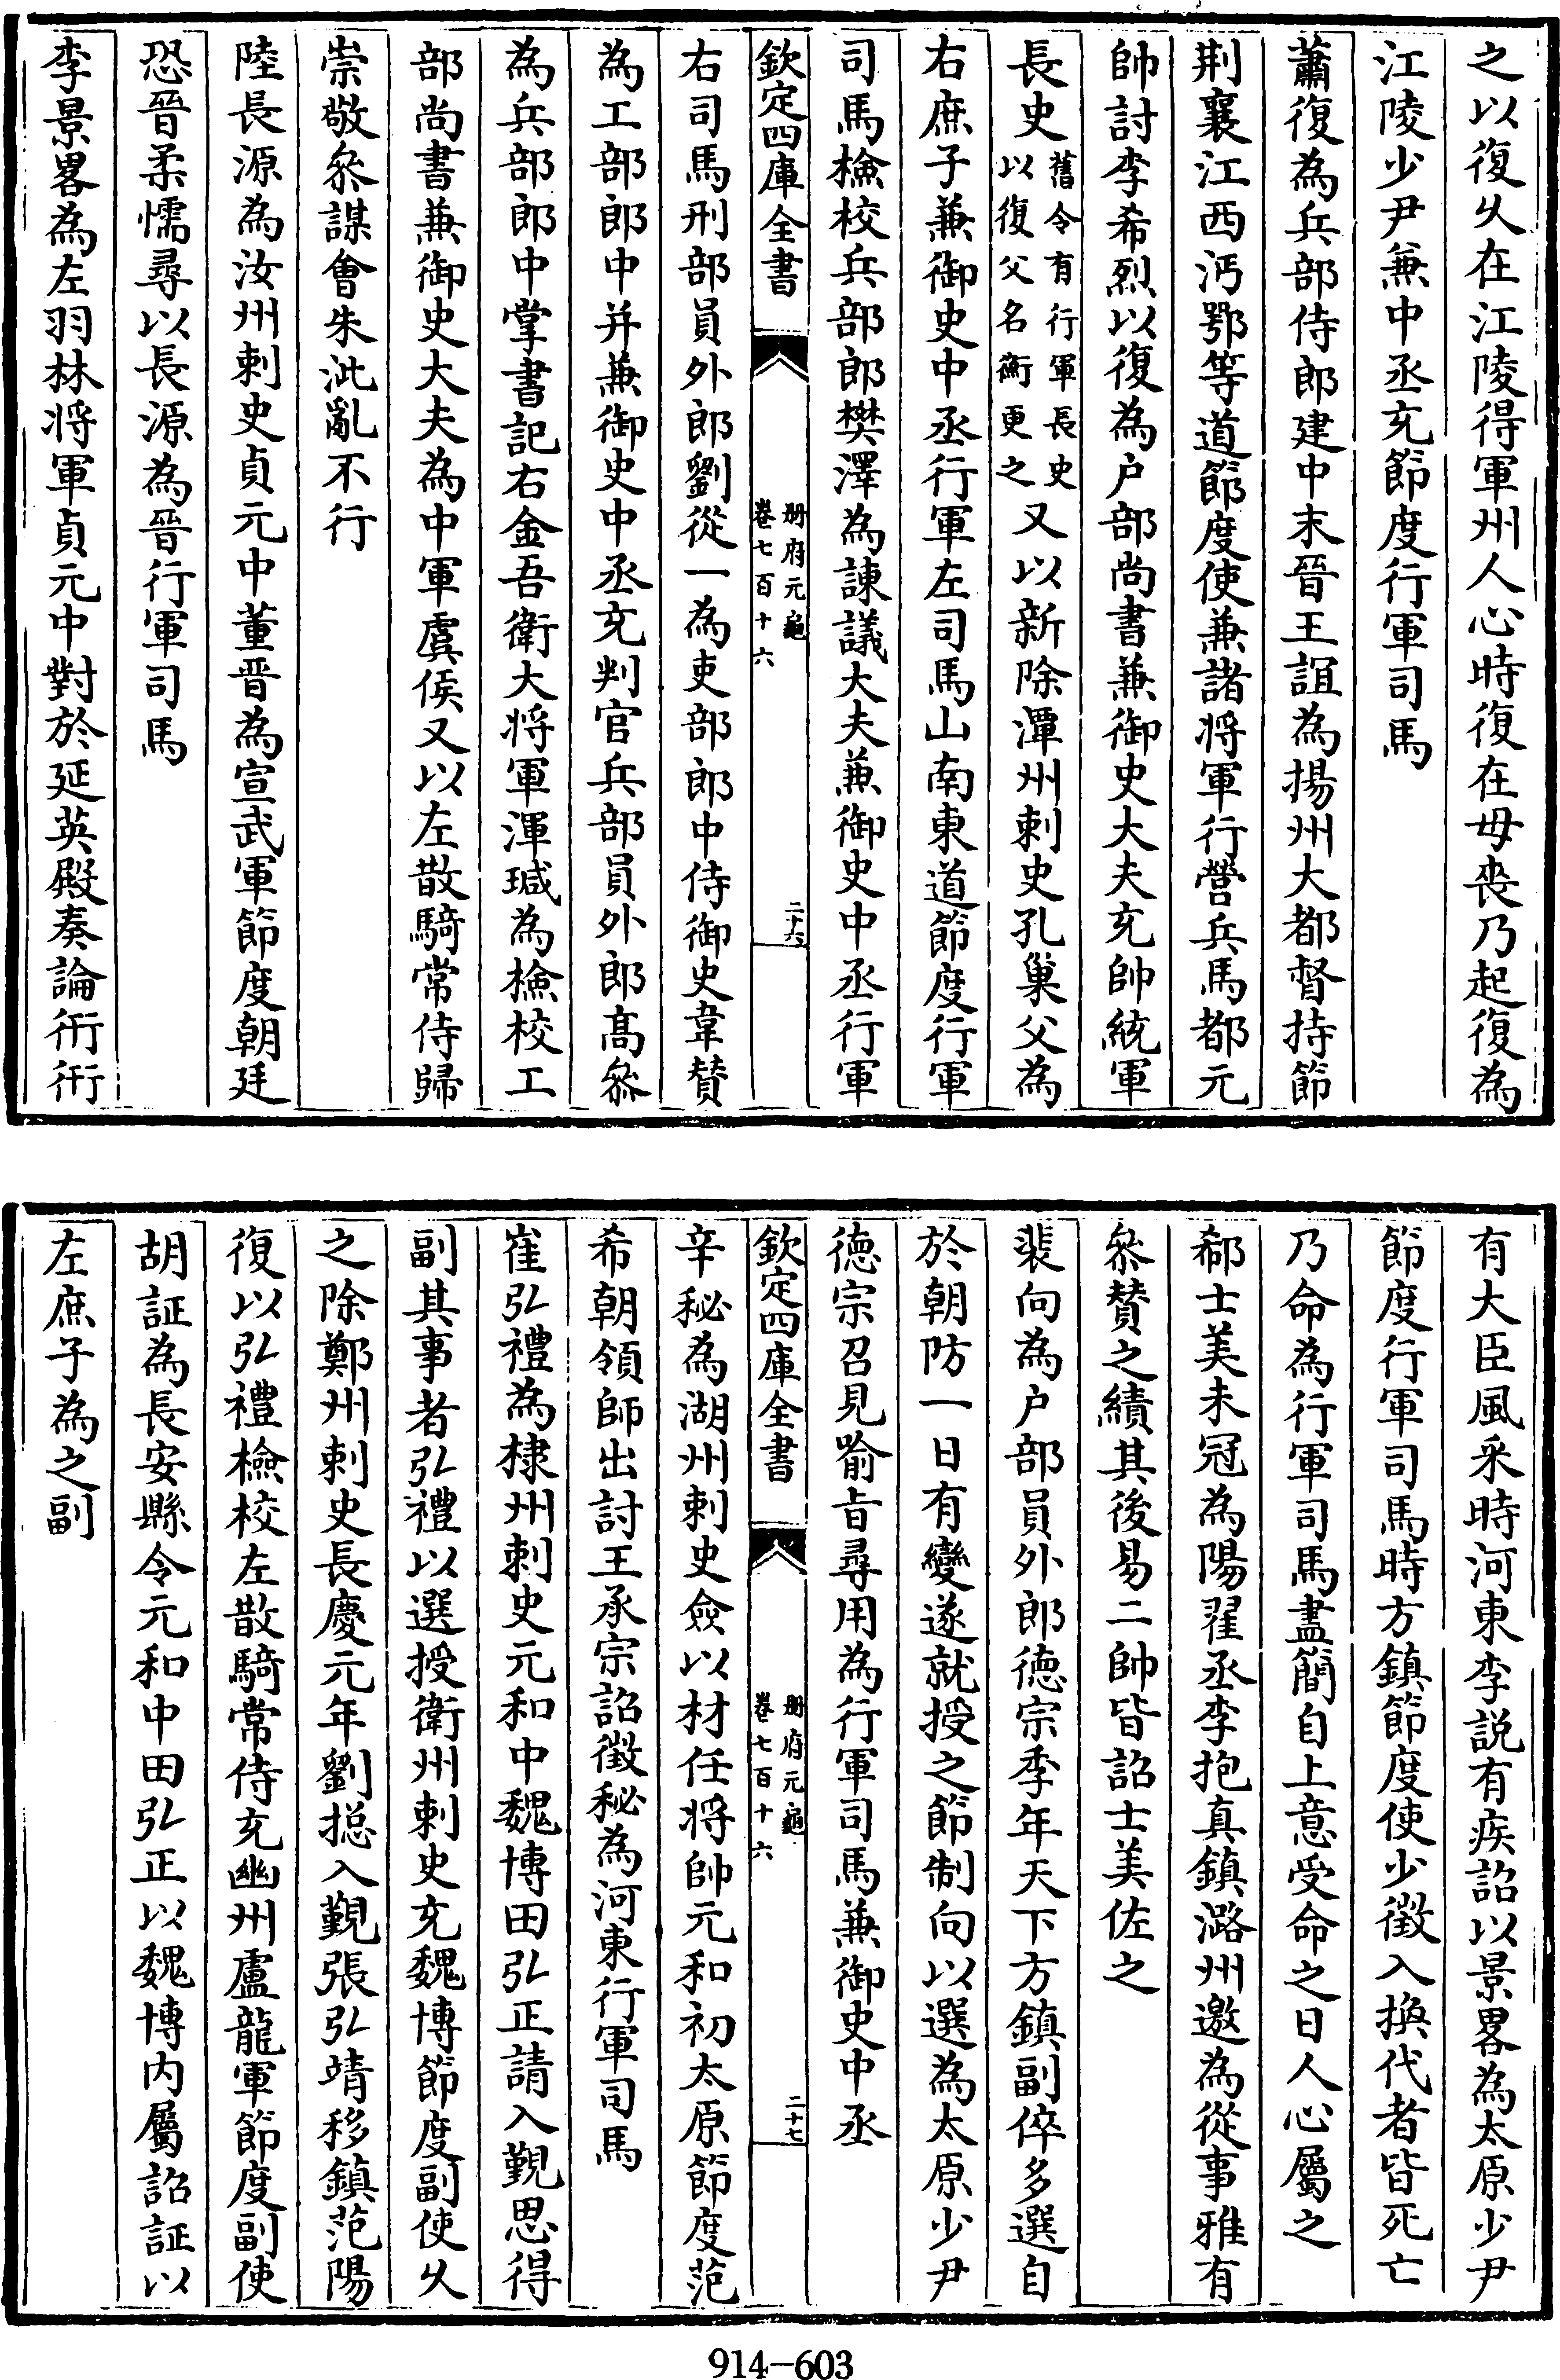 之以復乆在江陵得軍州人心時復在母喪乃起復為
江陵少尹兼中丞充節度行軍司馬
蕭復為兵部侍郎建中末晉王誼為揚州大都督持節
荆襄江西沔鄂等道節度使兼諸将軍行營兵馬都元
帥討李希烈以復為户部尚書兼御史大夫充帥統軍
長史舊令有行軍長史以復父名衡更之又以新除潭州刺史孔巢父為
右庶子兼御史中丞行軍左司馬山南東道節度行軍
司馬檢校兵部郎樊澤為諌議大夫兼御史中丞行軍
欽定四庫全書
册府元龜
卷七百十六
二十六
右司馬刑部員外郎劉從一為吏部郎中侍御史韋賛
為工部郎中并兼御史中丞充判官兵部員外郎髙叅
為兵部郎中掌書記右金吾衛大将軍渾瑊為檢校工
部尚書兼御史大夫為中軍虞侯又以左散騎常侍歸
崇敬叅謀會朱泚亂不行
陸長源為汝州刺史貞元中董晉為宣武軍節度朝廷
恐晉柔懦尋以長源為晉行軍司馬
李景畧為左羽林将軍貞元中對於延英殿奏論衎衎
有大臣風采時河東李説有疾詔以景畧為太原少尹
節度行軍司馬時方鎮節度使少徴入換代者皆死亡
乃命為行軍司馬盡簡自上意受命之日人心屬之
郗士美未冠為陽翟丞李抱真鎮潞州邀為從事雅有
叅賛之績其後易二帥皆詔士美佐之
裴向為户部員外郎德宗季年天下方鎮副倅多選自
於朝防一日有變遂就授之節制向以選為太原少尹
德宗召見喻旨尋用為行軍司馬兼御史中丞
欽定四庫全書
册府元龜
卷七百十六
二十七
辛秘為湖州刺史僉以材任将帥元和初太原節度范
希朝領師出討王承宗詔徴秘為河東行軍司馬
崔弘禮為棣州刺史元和中魏博田弘正請入覲思得
副其事者弘禮以選授衛州刺史充魏博節度副使乆
之除鄭州刺史長慶元年劉揔入覲張弘靖移鎮范陽
復以弘禮檢校左散騎常侍充幽州盧龍軍節度副使
胡証為長安縣令元和中田弘正以魏博内屬詔証以
左庶子為之副
914-603